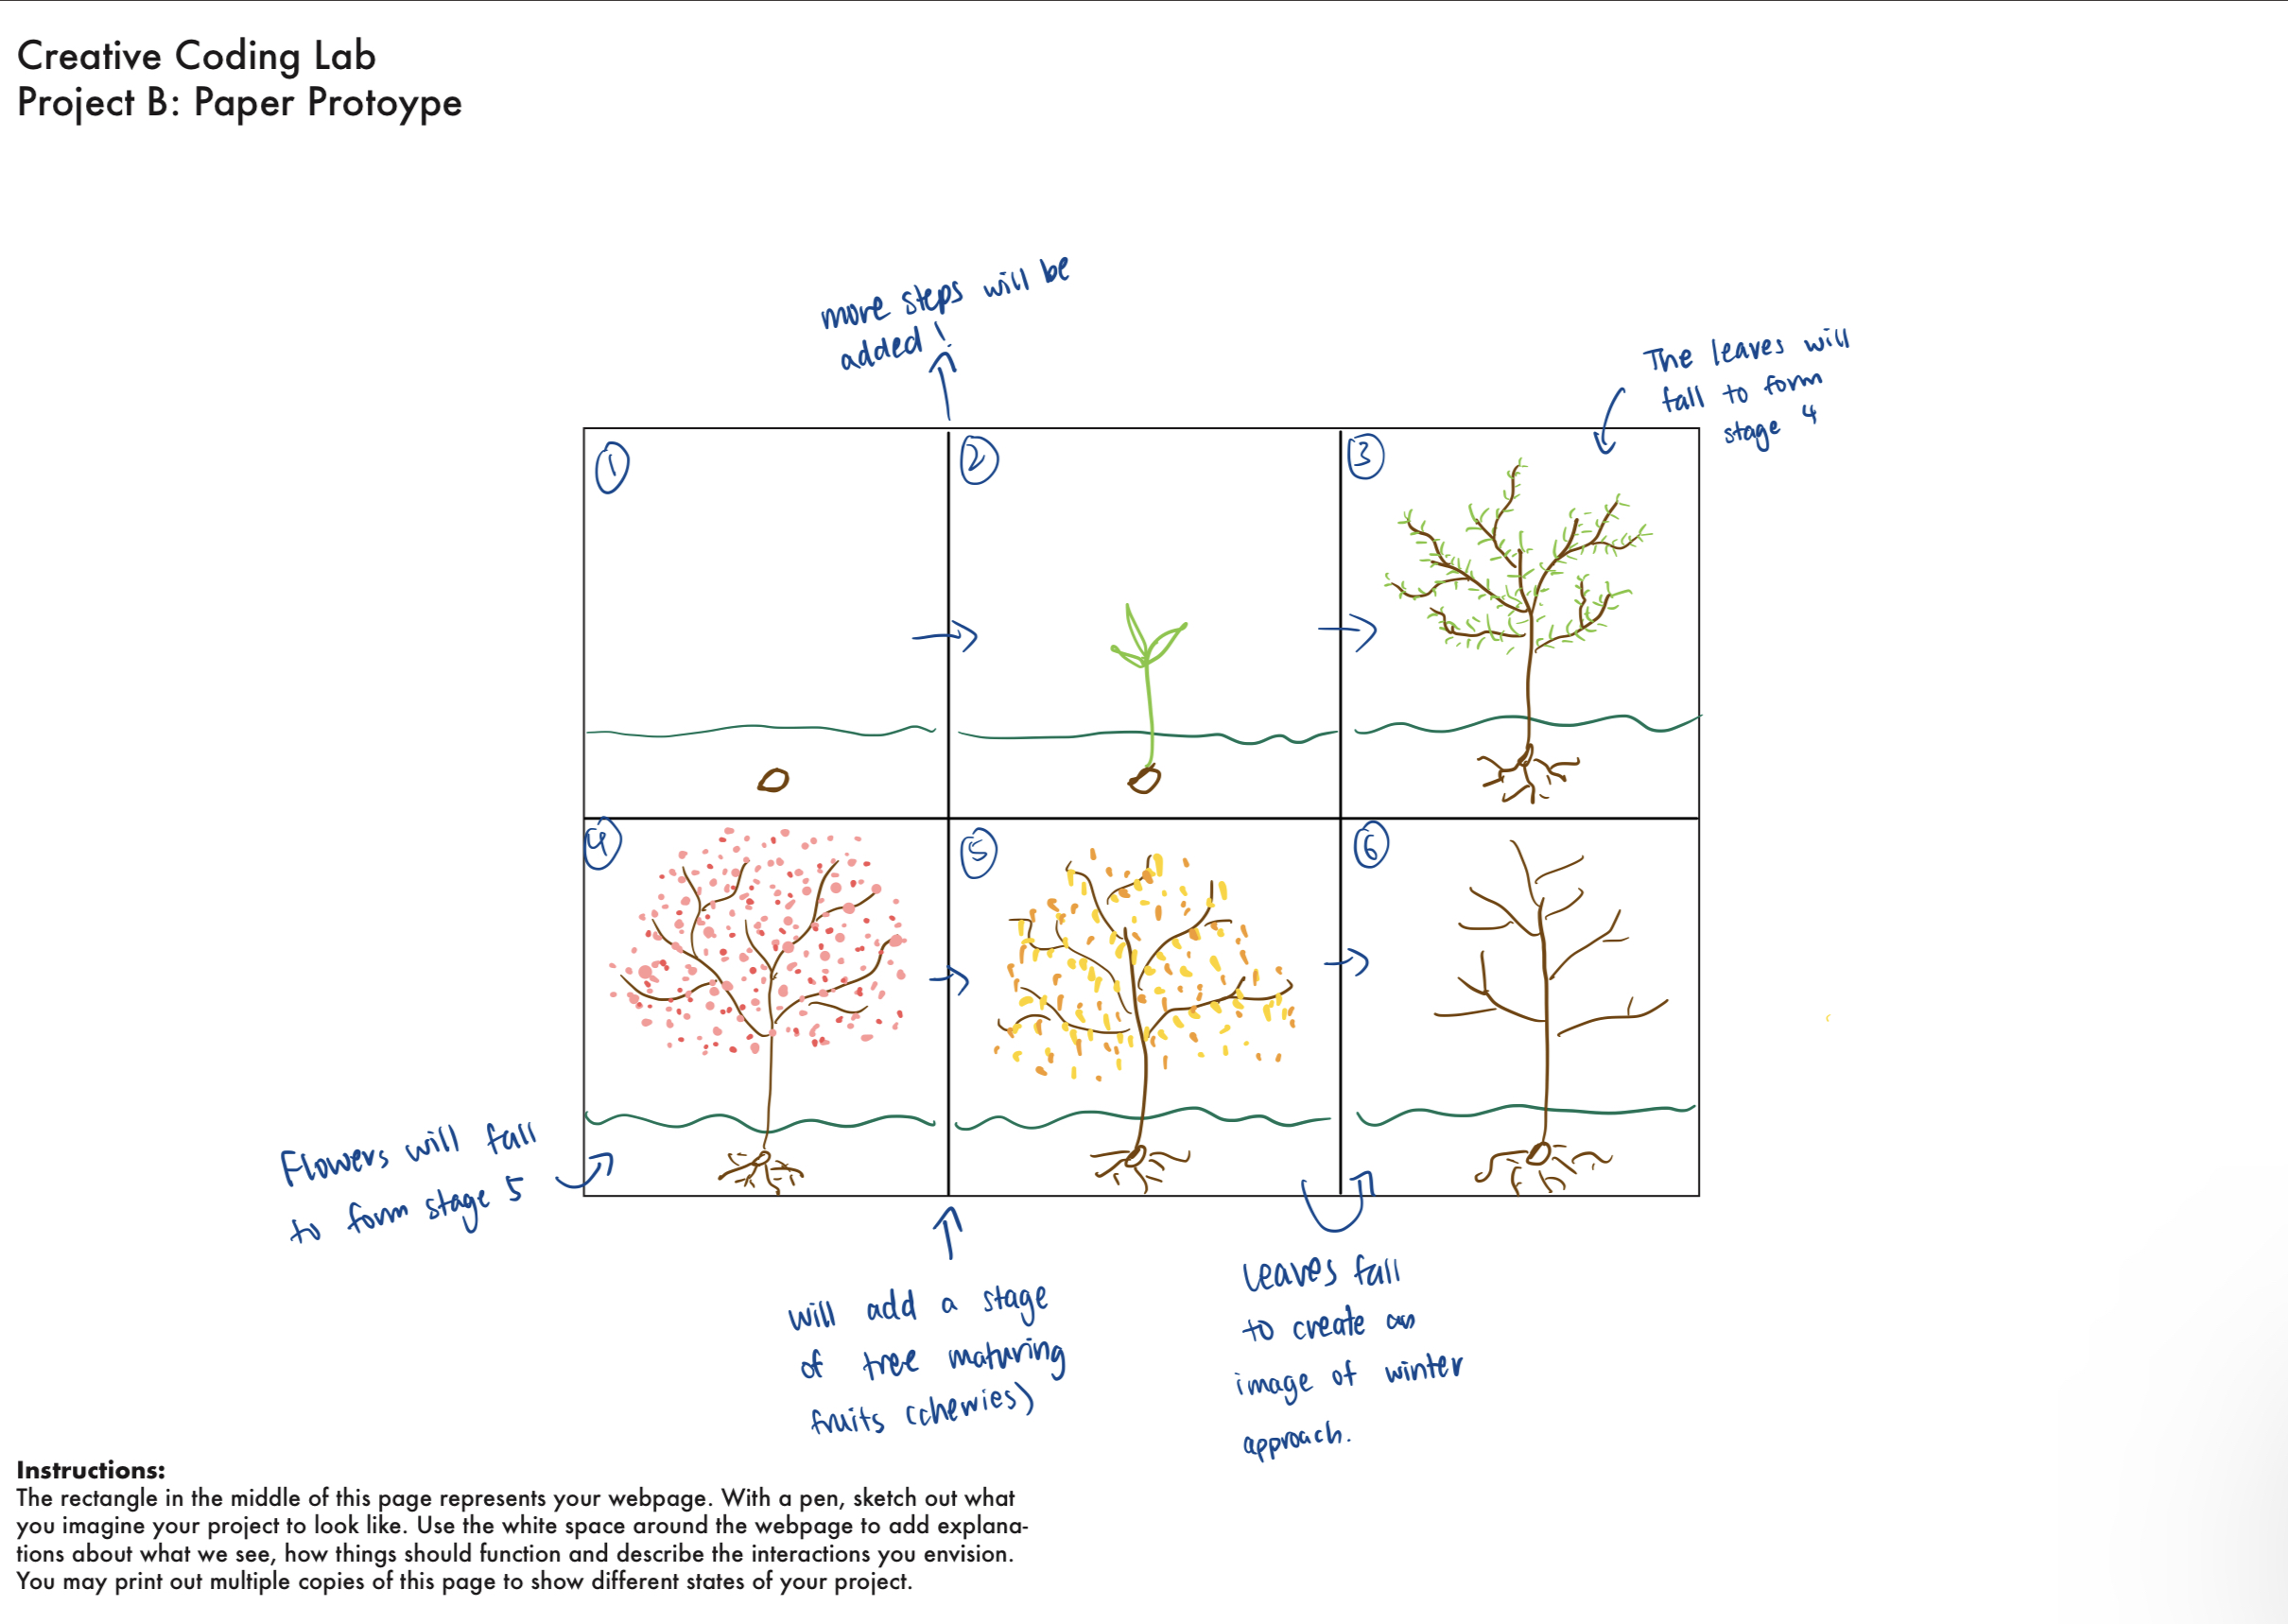 Creative Coding Lab
Project B: Paper Protoype
more steps will be
added!
The leaves will
fall to form
stage 4
1
2
3
4
5
6
Flowers will fall
to form stage 5
will add a stage
of tree maturing
fruits (cherries)
leaves fall
to create an
image of winter
approach.
Instructions:
The rectangle in the middle of this page represents your webpage. With a pen, sketch out what
you imagine your project to look like. Use the white space around the webpage to add explana-
tions about what we see, how things should function and describe the interactions you envision.
You may print out multiple copies of this page to show different states of your project.